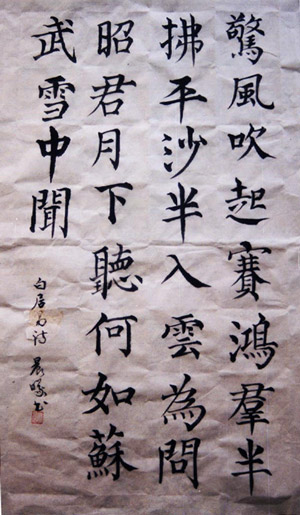 驚風吹起賽鴻羣半
拂平沙半入雲為問
昭君月下聽何如蘇
武雪中聞
白居易诗 晨曦书